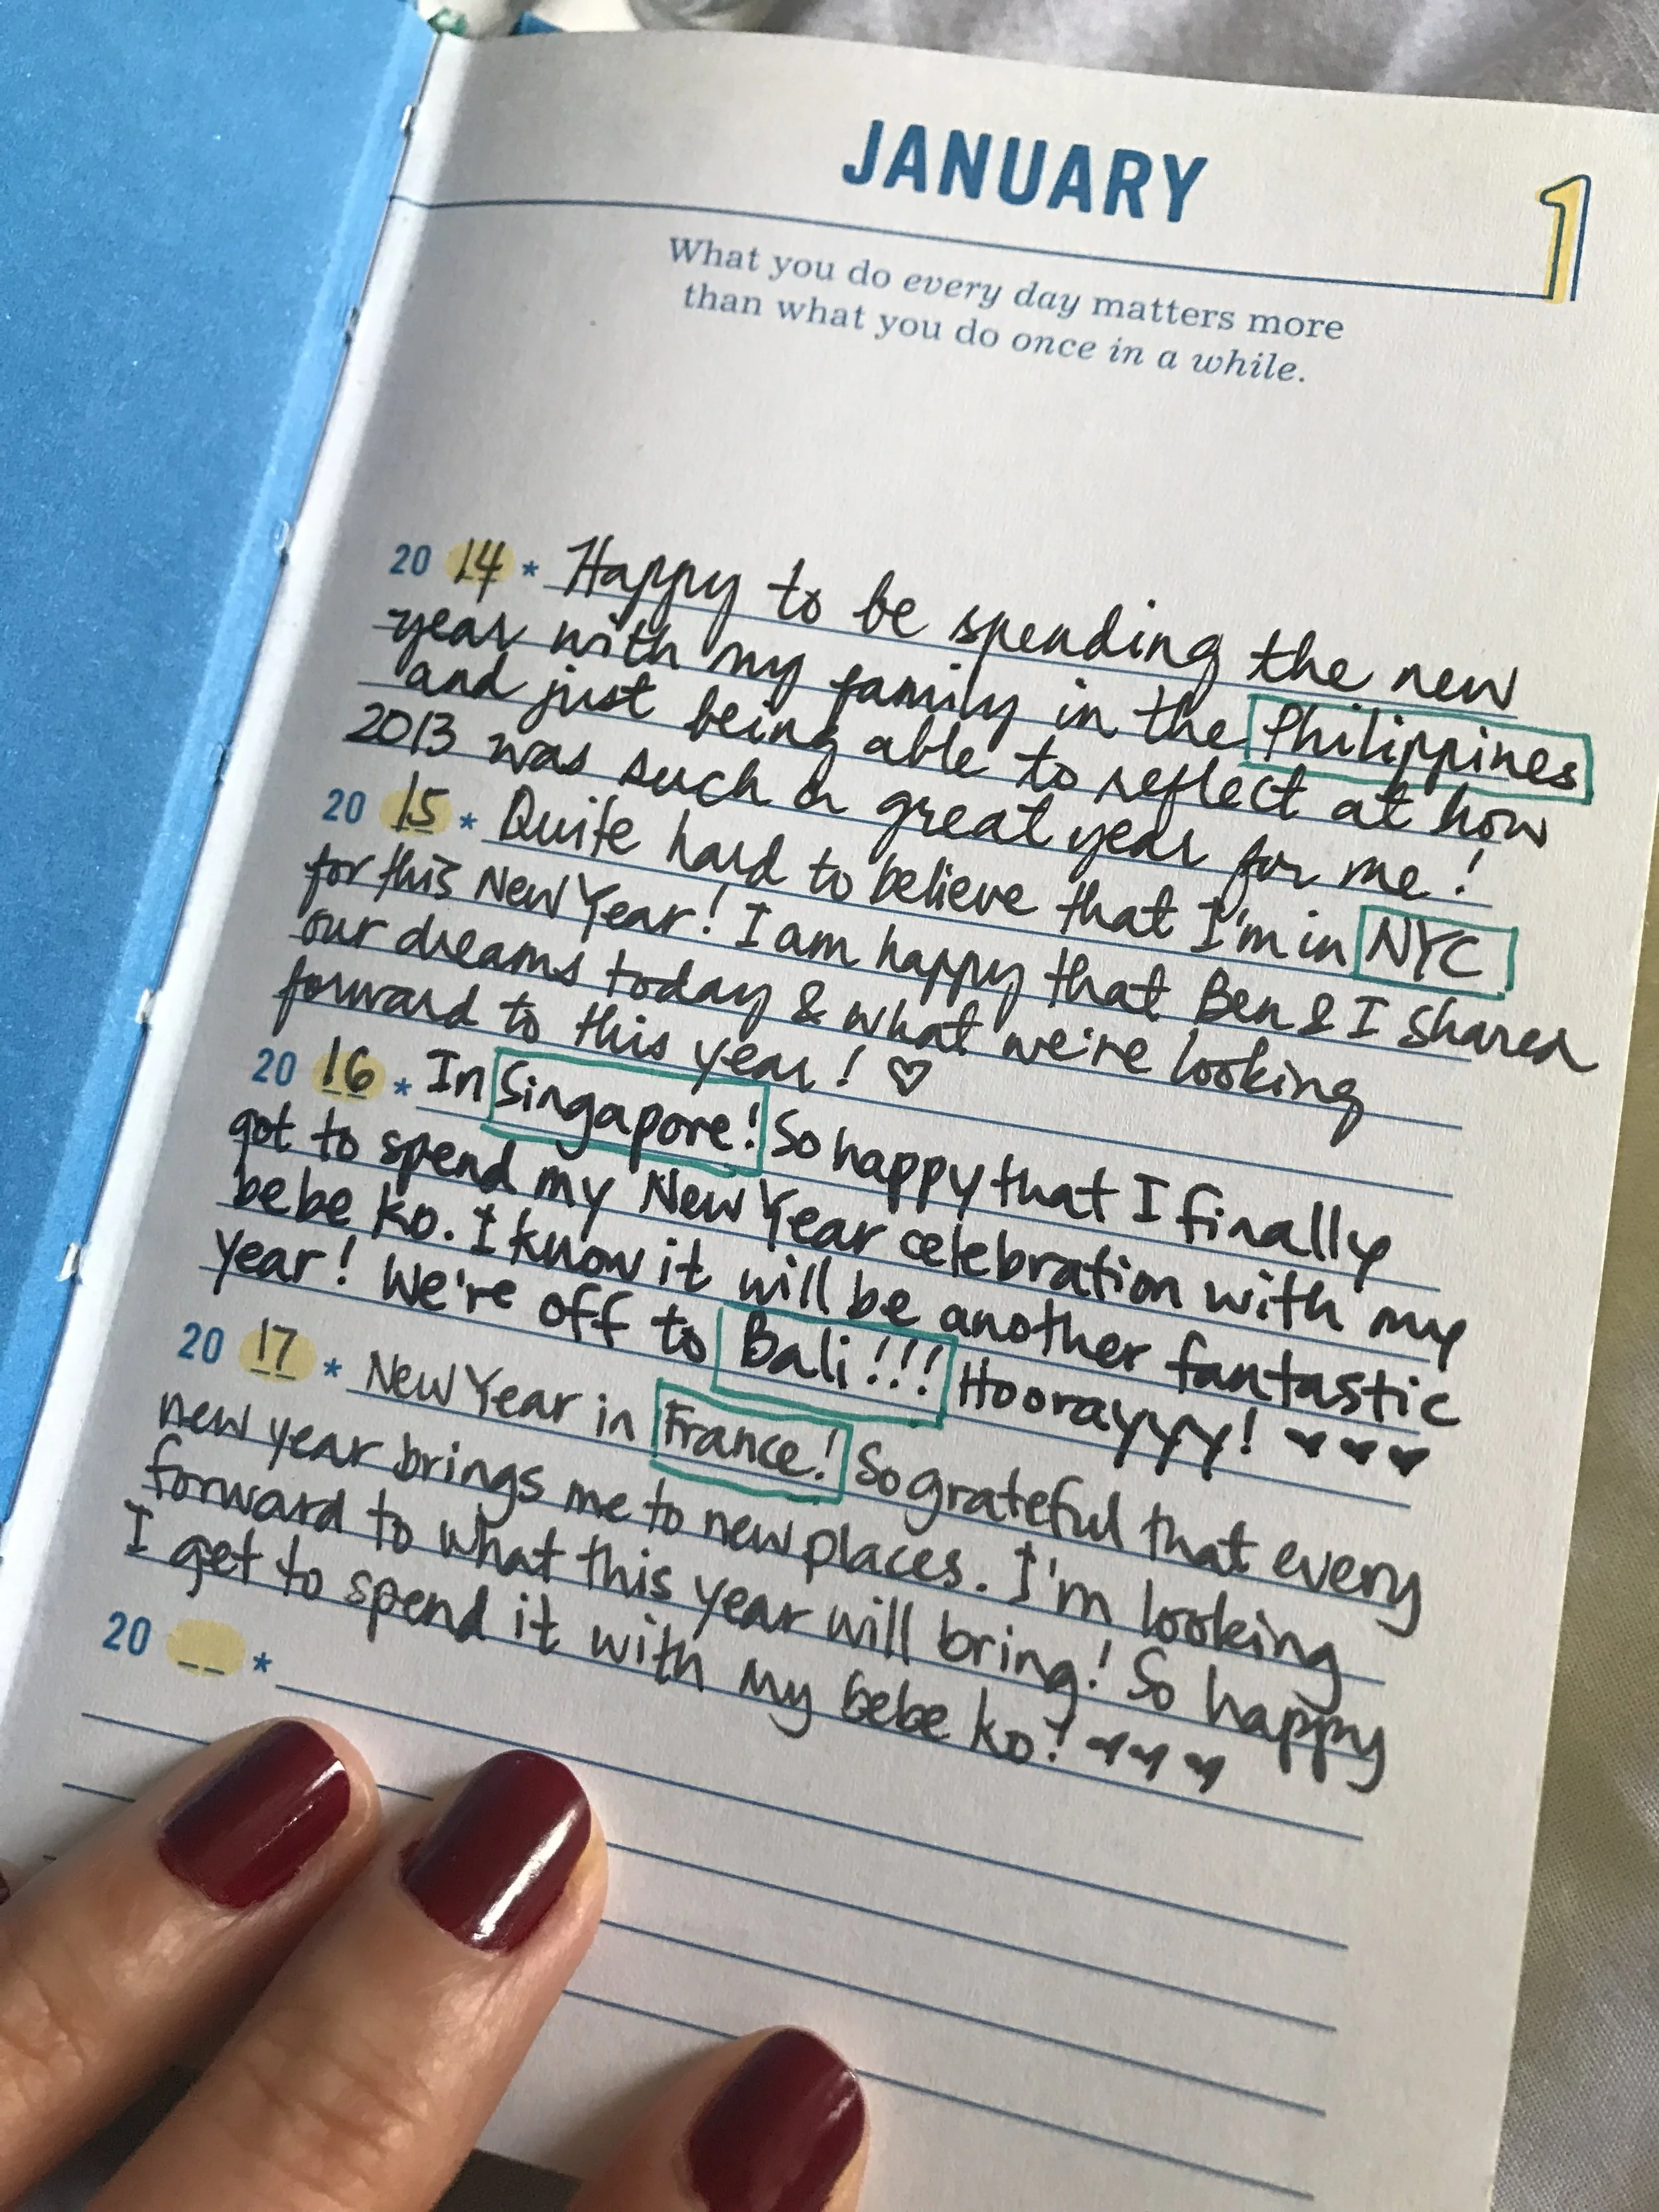 JANUARY
1
What you do every day matters more
than what you do once in a while.
20 14 * Happy to be spending the new
year with my family in the Philippines
and just being able to reflect at how
2013 was such a great year for me!
20 15 * Quite hard to believe that I'm in NYC
for this New Year! I am happy that Ben & I shared
our dreams today & what we're looking
forward to this year! ♡
20 16 * In Singapore! So happy that I finally
got to spend my New Year celebration with my
bebe ko. I know it will be another fantastic
year! We're off to Bali!!! Hoorayyy! ♥♥♥
20 17 * New Year in France! So grateful that every
new year brings me to new places. I'm looking
forward to what this year will bring! So happy
I get to spend it with my bebe ko! ♥♥♥
20 __ *